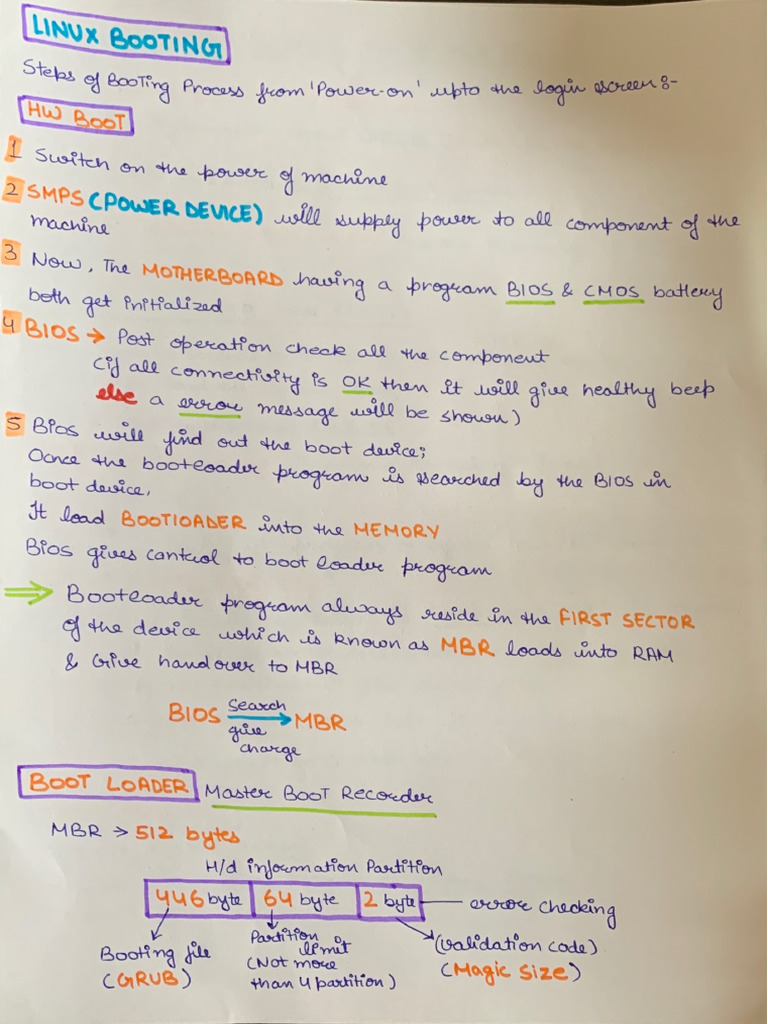 LINUX BOOTING
Steps of BooTing Process from 'Power-on' upto the login screen:-
HW BOOT
1 Switch on the power of machine
2 SMPS (POWER DEVICE) will supply power to all component of the
machine
3 Now, The MOTHERBOARD having a program BIOS & CMOS battery
both get initialized
4 BIOS → Post operation check all the component
(if all connectivity is OK then it will give healthy beep
else a error message will be shown)
5 Bios will find out the boot device;
Ocnce the bootloader program is searched by the BIOS in
boot device,
It load BOOTlOADER into the MEMORY
Bios gives control to boot loader program
⇒ Bootloader program always reside in the FIRST SECTOR
of the device which is known as MBR loads into RAM
& Give handover to MBR
Search
BIOS → MBR
give
charge
BOOT LOADER Master BooT Recorder
MBR → 512 bytes
H/d information Partition
446 byte 64 byte 2 byte — error checking
Booting file
(GRUB)
Partition
limit
(Not more
than 4 partition)
(validation code)
(Magic Size)